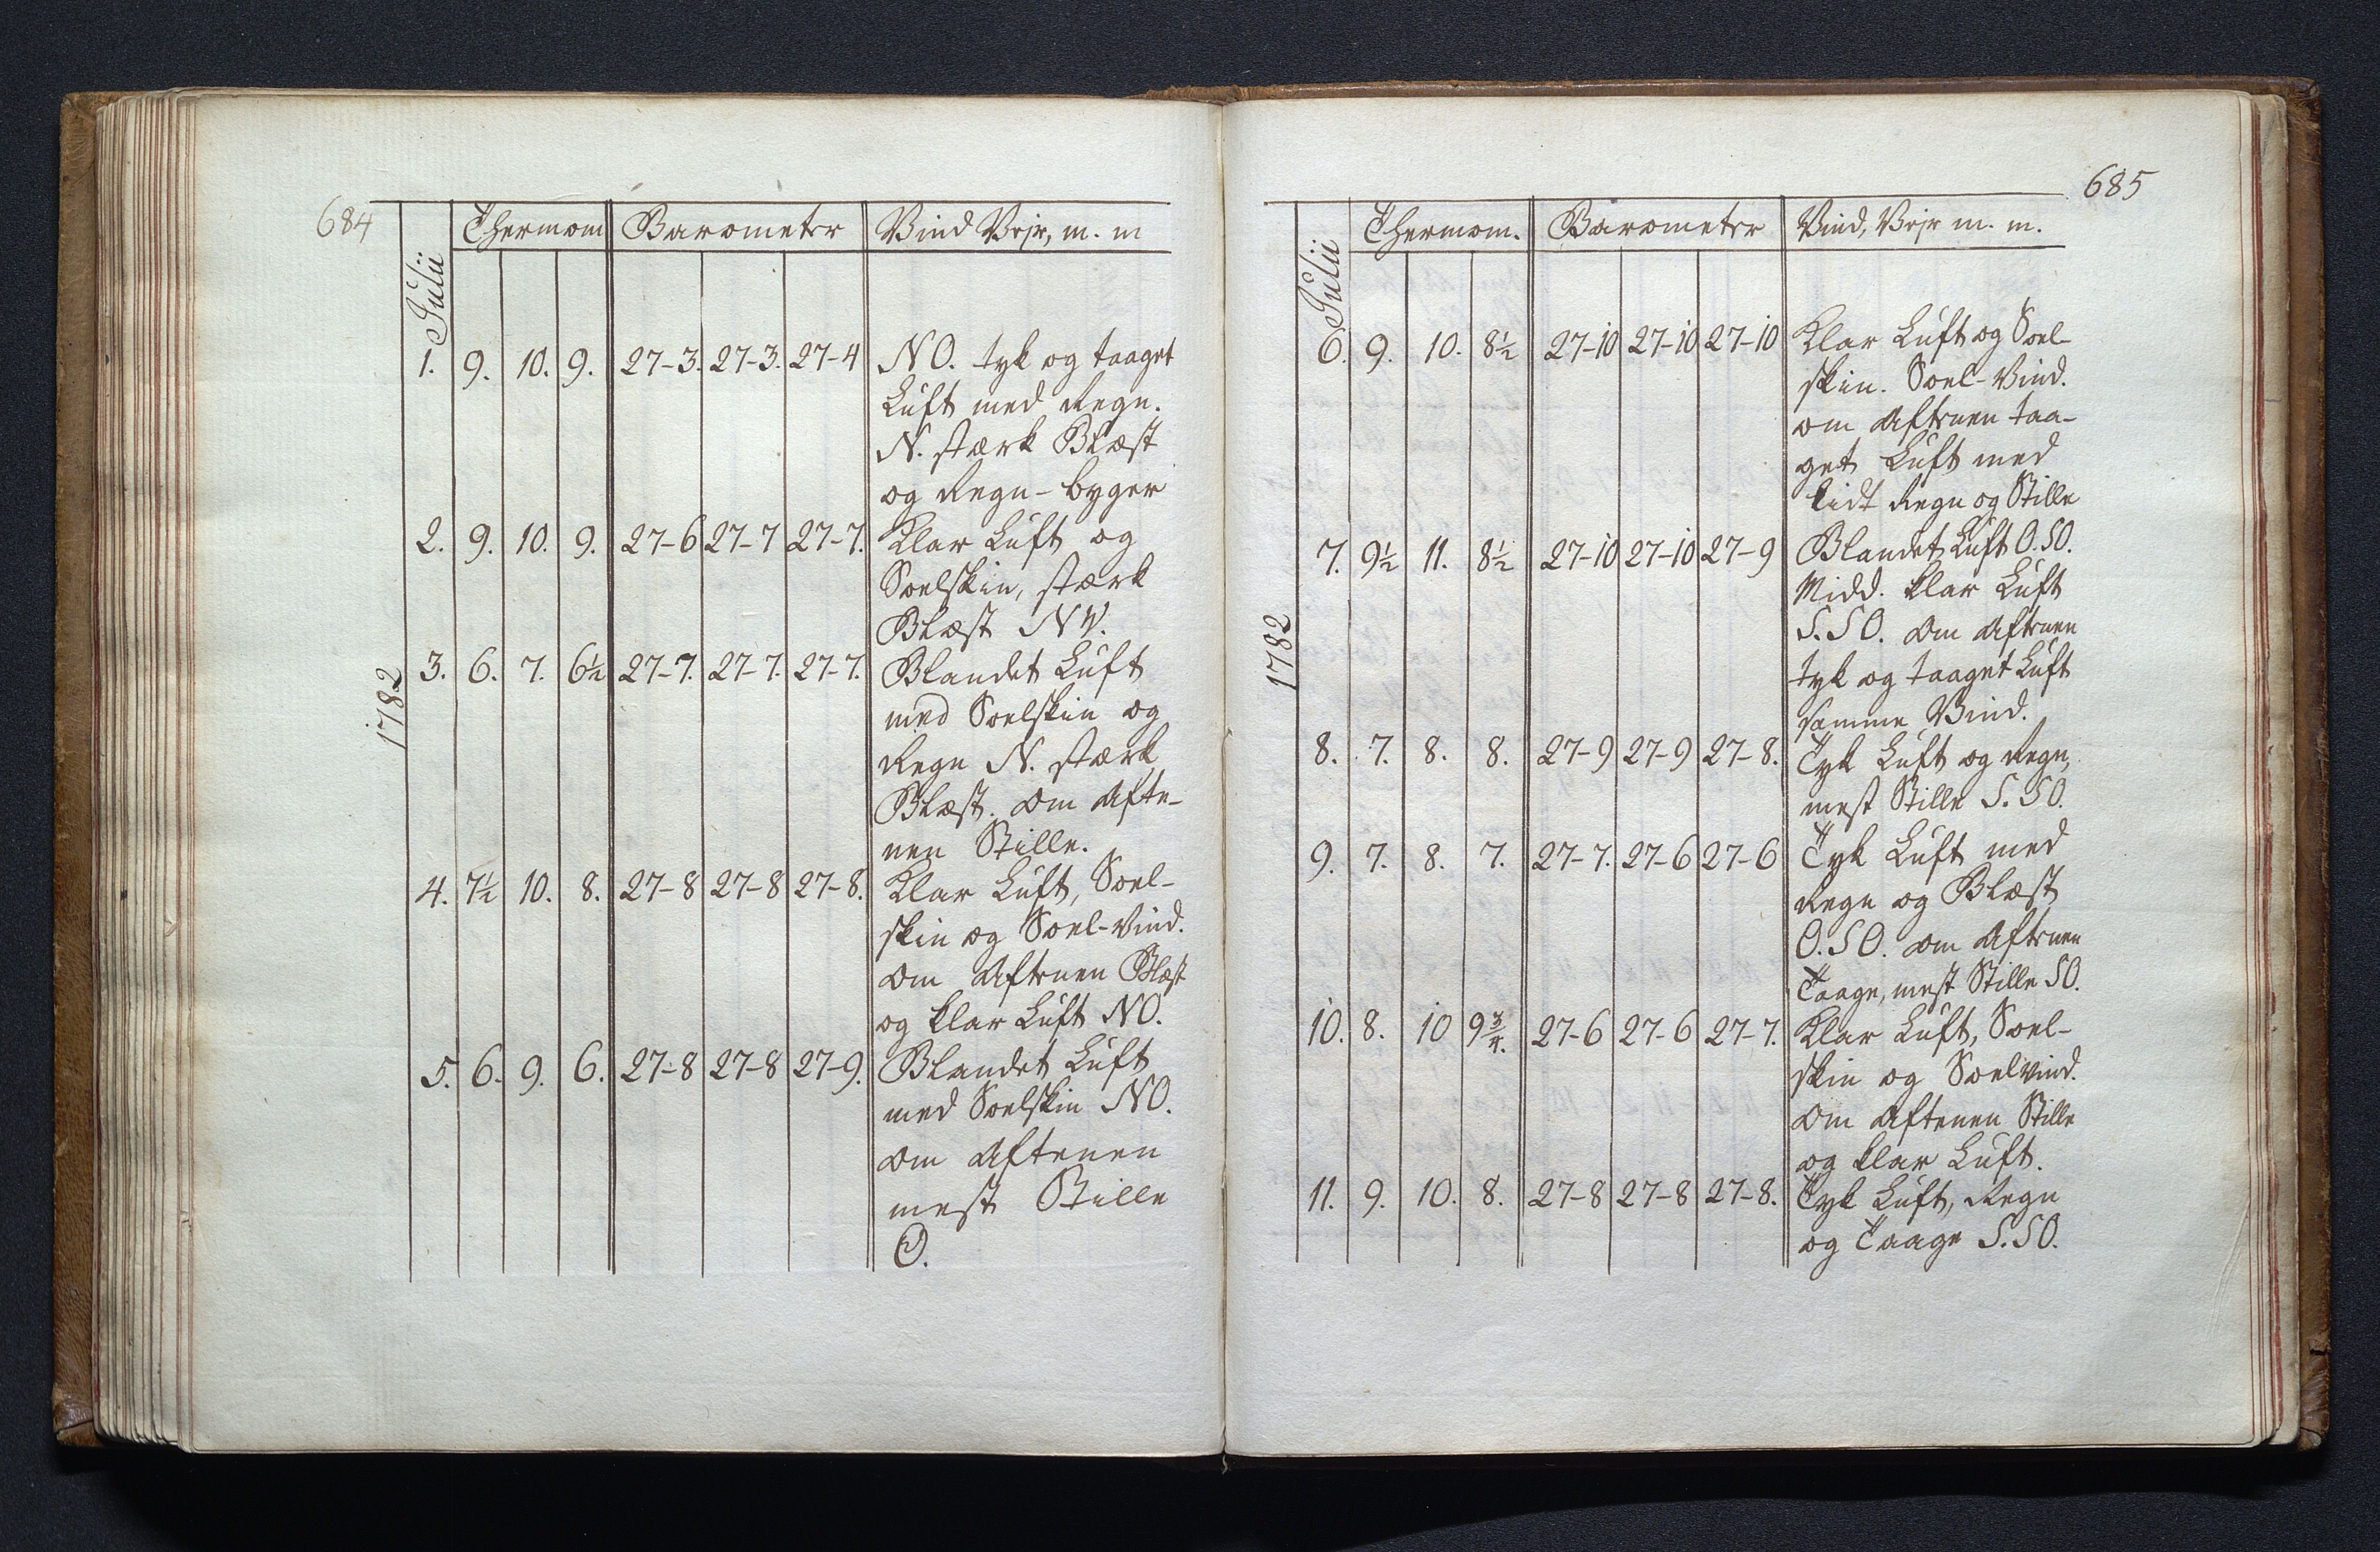 684
Thermom Barometer Vind Vejr, m. m
Julii
1782
1. 9. 10. 9. 27-3. 27-3. 27-4 NO. tyk og taaget
Luft med Regn.
N. stærk Blæst
og Regn-byger
2. 9. 10. 9. 27-6 27-7 27-7. Klar Luft og
Soelskin, stærk
Blæst NV.
3. 6. 7. 6½ 27-7. 27-7. 27-7. Blandet Luft
med Soelskin og
Regn N. stærk
Blæst. om Afte-
nen Stille.
4. 7½ 10. 8. 27-8 27-8 27-8. Klar Luft, Soel-
skin og Soel-Vind.
om Aftenen Blæst
og klar Luft NO.
5. 6. 9. 6. 27-8 27-8 27-9. Blandet Luft
med Soelskin NO.
om Aftenen
mest Stille
O.
685
Thermom. Barometer Vind, Vejr m. m.
Julii
1782
6. 9. 10. 8½ 27-10 27-10 27-10 Klar Luft og Soel-
skin. Soel-Vind.
om Aftenen taa-
get Luft med
lidt Regn og Stille
7. 9½ 11. 8½ 27-10 27-10 27-9 Blandet Luft O.SO.
Midd. klar Luft
S.SO. om Aftenen
tyk og taaget Luft
samme Vind.
8. 7. 8. 8. 27-9 27-9 27-8. Tyk Luft og Regn,
mest Stille S.SO.
9. 7. 8. 7. 27-7. 27-6 27-6 Tyk Luft med
Regn og Blæst
O.SO. om Aftenen
Taage, mest Stille SO.
10. 8. 10 9¾. 27-6 27-6 27-7. Klar Luft, Soel-
skin og Soelvind.
om Aftenen Stille
og klar Luft.
11. 9. 10. 8. 27-8 27-8 27-8. Tyk Luft, Regn
og Taage S.SO.